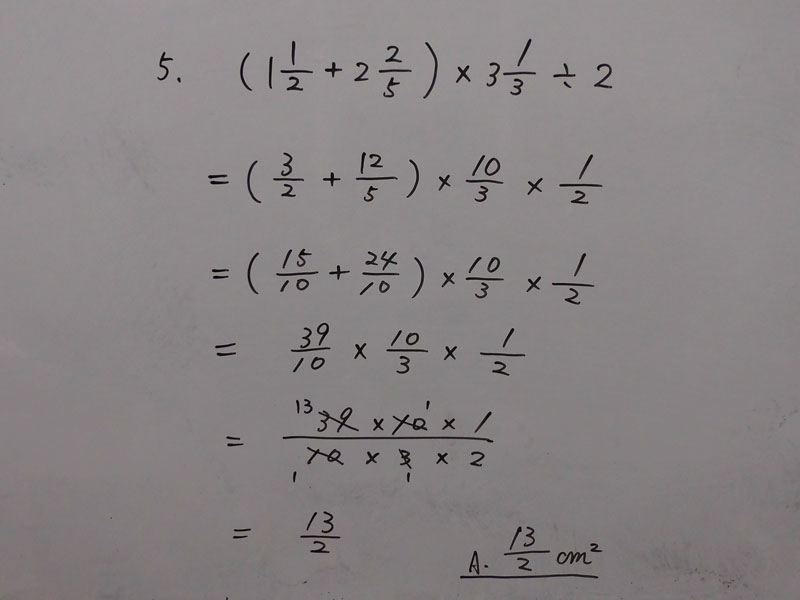 5. (1 1/2 + 2 2/5) × 3 1/3 ÷ 2
= (3/2 + 12/5) × 10/3 × 1/2
= (15/10 + 24/10) × 10/3 × 1/2
= 39/10 × 10/3 × 1/2
13 1
= 39 × 10 × 1 / 10 × 3 × 2
1 1
= 13/2
A. 13/2 cm²